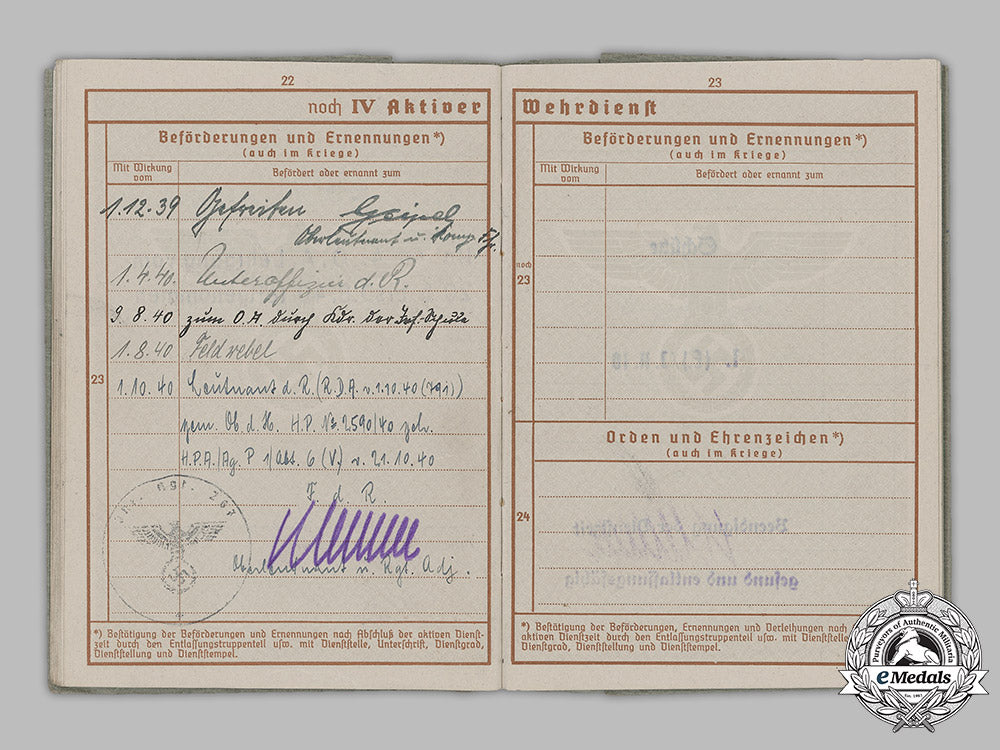 22
noch IV Aktiver
Beförderungen und Ernennungen*)
(auch im Kriege)
Mit Wirkung vom
Befördert oder ernannt zum
1.12.39 Gefreiten Geipel
Oberleutnant u. Komp. Fhr.
1.4.40. Unteroffizier d. R.
9.8.40 zum O.A. durch Kdr. der Inf.-Schule
1.8.40 Feldwebel
23
1.10.40 Leutnant d. R. (R.D.A. v. 1.10.40 (791))
gem. Ob. d. H. H.P. Nr. 2590/40
H.P.A./Ag. P 1/Abt. 6 (V.) v. 21.10.40
F. d. R.
Oberleutnant u. Rgt. Adj.
*) Bestätigung der Beförderungen und Ernennungen nach Abschluß der aktiven Dienst-
zeit durch den Entlassungstruppenteil usw. mit Dienststelle, Unterschrift, Dienstgrad,
Dienststellung und Dienststempel.
23
Wehrdienst
Beförderungen und Ernennungen*)
(auch im Kriege)
Mit Wirkung vom
Befördert oder ernannt zum
noch
23
Orden und Ehrenzeichen*)
(auch im Kriege)
24
*) Bestätigung der Beförderungen, Ernennungen und Verleihungen nach
aktiven Dienstzeit durch den Entlassungstruppenteil usw. mit Dienststelle
Dienstgrad, Dienststellung und Dienststempel.
Purveyors of Authentic Militaria
eMedals